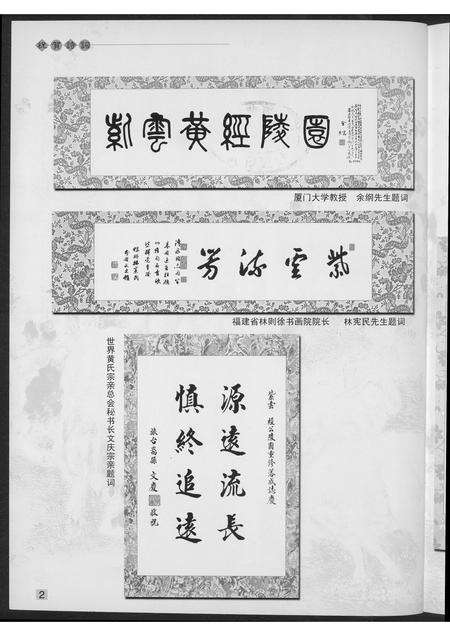 祝賀詩詞
紫雲黄經陵園
厦门大学教授 余纲先生题词
紫雲流芳
福建省林则徐书画院院长 林宪民先生题词
世界黄氏宗亲总会秘书长文庆宗亲题词
紫雲 經公陵園重修落成誌慶
源遠流長
慎終追遠
旅台裔孫 文慶 敬祝
2